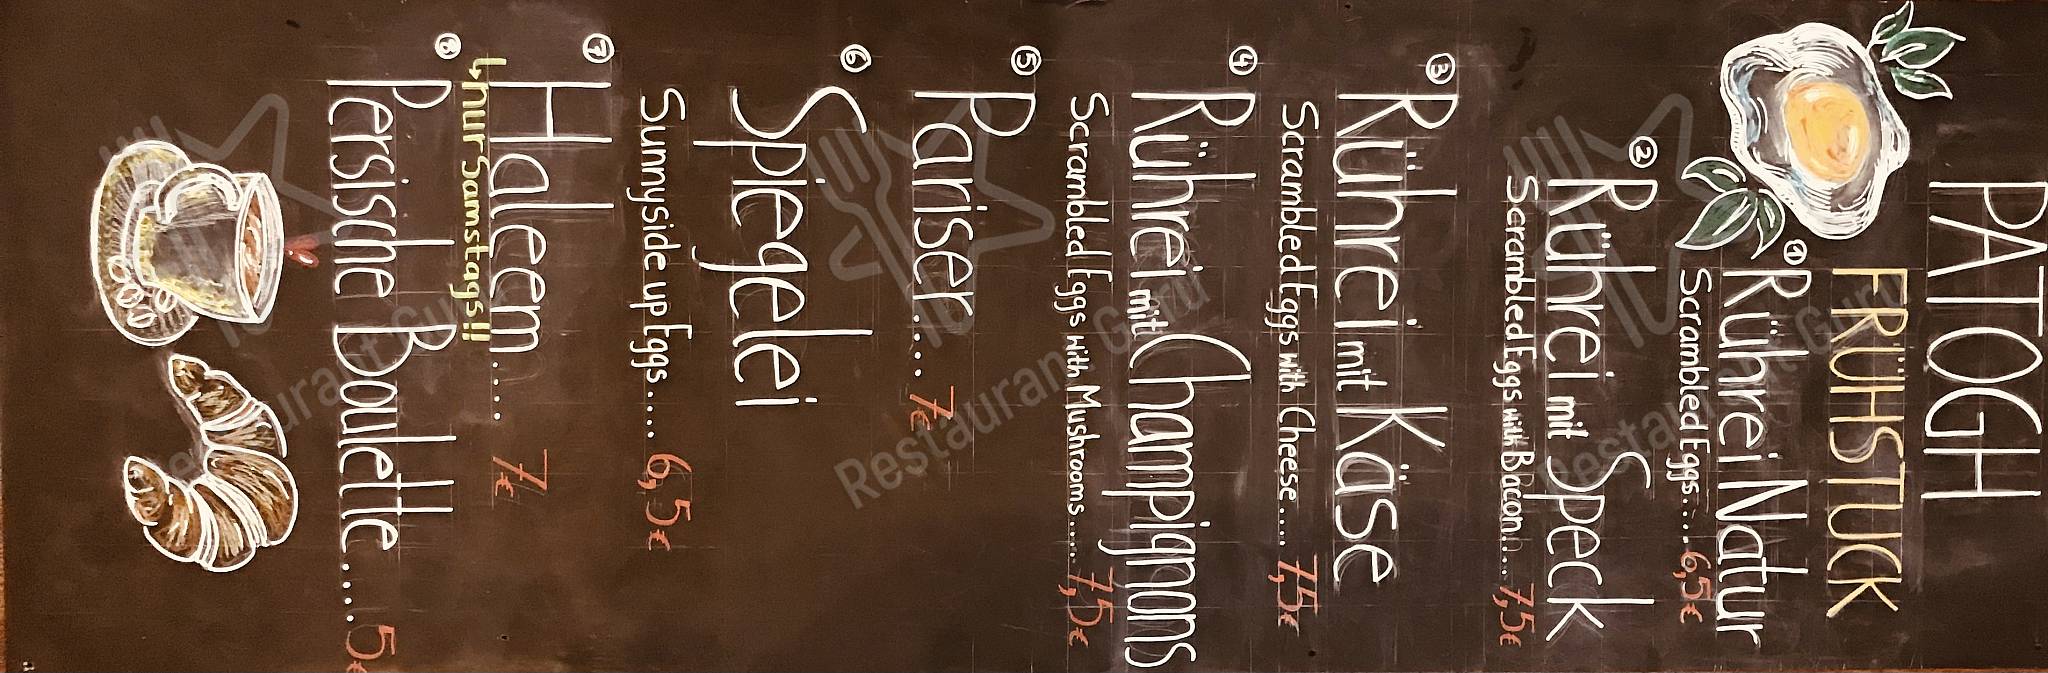 PATOGH
FRÜHSTÜCK
① Rührei Natur
Scrambled Eggs..... 6,5€
② Rührei mit Speck
Scrambled Eggs with Bacon..... 7,5€
③ Rührei mit Käse
Scrambled Eggs with Cheese..... 7,5€
④ Rührei mit Champignons
Scrambled Eggs with Mushrooms...... 7,5€
⑤ Pariser.... 7€
⑥ Spiegelei
Sunnyside up Eggs..... 6,5€
⑦ Haleem.... 7€
↳nur Samstags!!
⑧ Persische Boulette.... 5€
Restaurant Guru
Restaurant Guru
Restaurant Guru